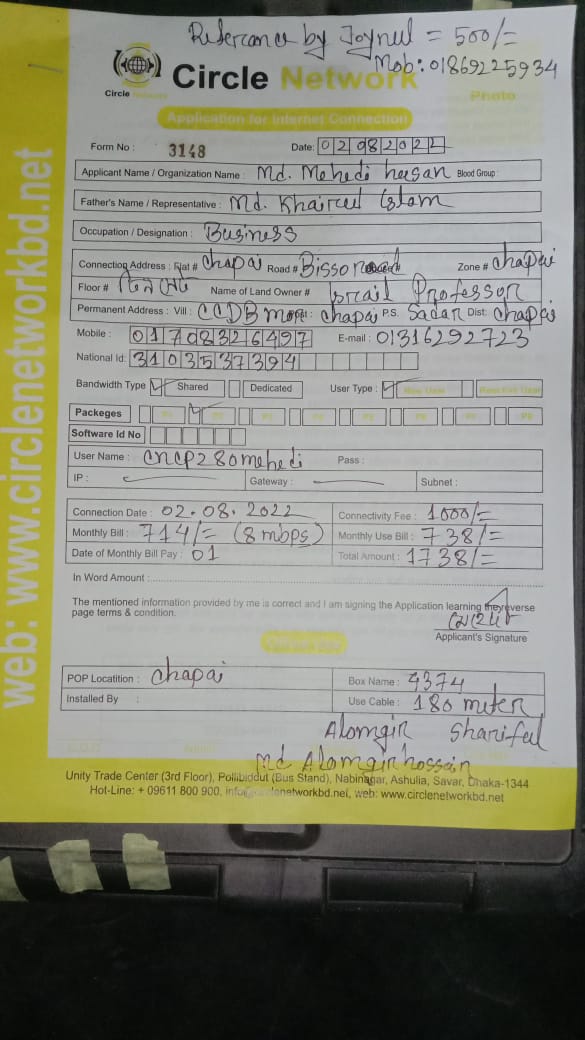 Referance by Joynul = 500/=
Mob: 01869225934
Circle Network
Circle Network
Photo
Application for Internet Connection
Form No : 3148 Date: 02082022
Applicant Name / Organization Name : Md. Mehedi hasan Blood Group :
Father's Name / Representative : Md. Khairul Islam
Occupation / Designation : Business
Connection Address : Flat # Chapai Road # Bissoroad Zone # Chapai
Floor # Name of Land Owner # Israil Professor
Permanent Address : Vill : CCDB Chapai P.S. Sadar Dist: Chapai
Mobile : 01708326497 E-mail : 01316292723
National Id: 3103537394
Bandwidth Type Shared Dedicated User Type : New User
Packeges
Software Id No
User Name : cncp280mehedi Pass :
IP : Gateway : Subnet :
Connection Date : 02.08.2022 Connectivity Fee : 1000/=
Monthly Bill : 714/= (8 mbps) Monthly Use Bill : 738/=
Date of Monthly Bill Pay : 01 Total Amount : 1738/=
In Word Amount :
The mentioned information provided by me is correct and I am signing the Application learning the reverse
page terms & condition.
Applicant's Signature
POP Locatition : Chapai Box Name : 4374
Installed By : Use Cable : 180 meter
Alomgir Shariful
Md Alomgir hossain
Unity Trade Center (3rd Floor), Pollibiddut (Bus Stand), Nabinagar, Ashulia, Savar, Dhaka-1344
Hot-Line: + 09611 800 900, info@circlenetworkbd.net, web: www.circlenetworkbd.net
web: www.circlenetworkbd.net